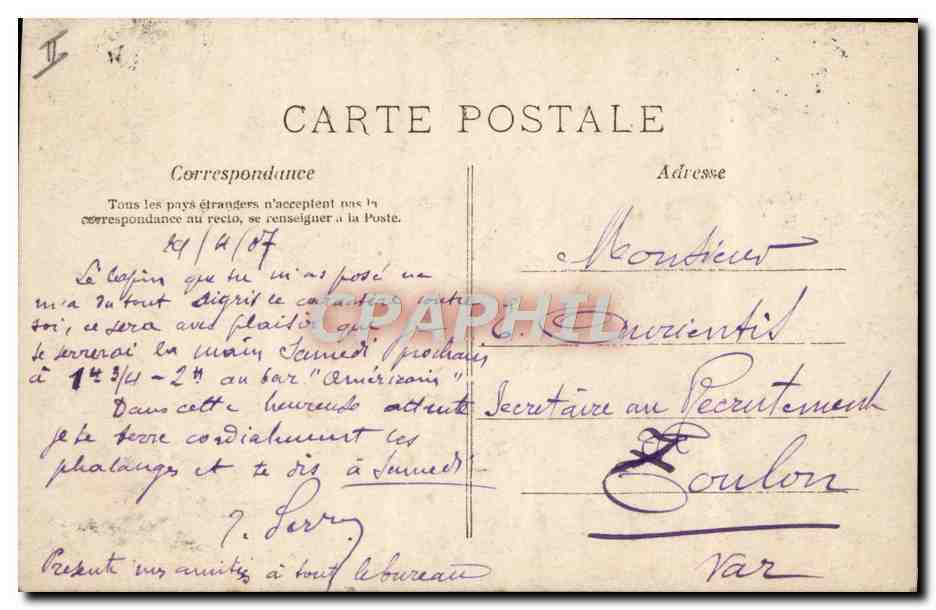 II
CARTE POSTALE
Correspondance
Tous les pays étrangers n'acceptent pas la
correspondance au recto, se renseigner à la Poste.
/4/07
Le lapin que tu m'as posé ne
m'a du tout aigri le caractère contre
toi, ce sera avec plaisir que je
te serrerai la main Samedi prochain
à 1h 3/4 - 2h au bar "Américain"
Dans cette heureuse attente
je te serre cordialement les
phalanges et te dis à Samedi
Présente mes amitiés à tout le bureau
Adresse
Monsieur
Secrétaire au Recrutement
Toulon
Var
CPAPHIL